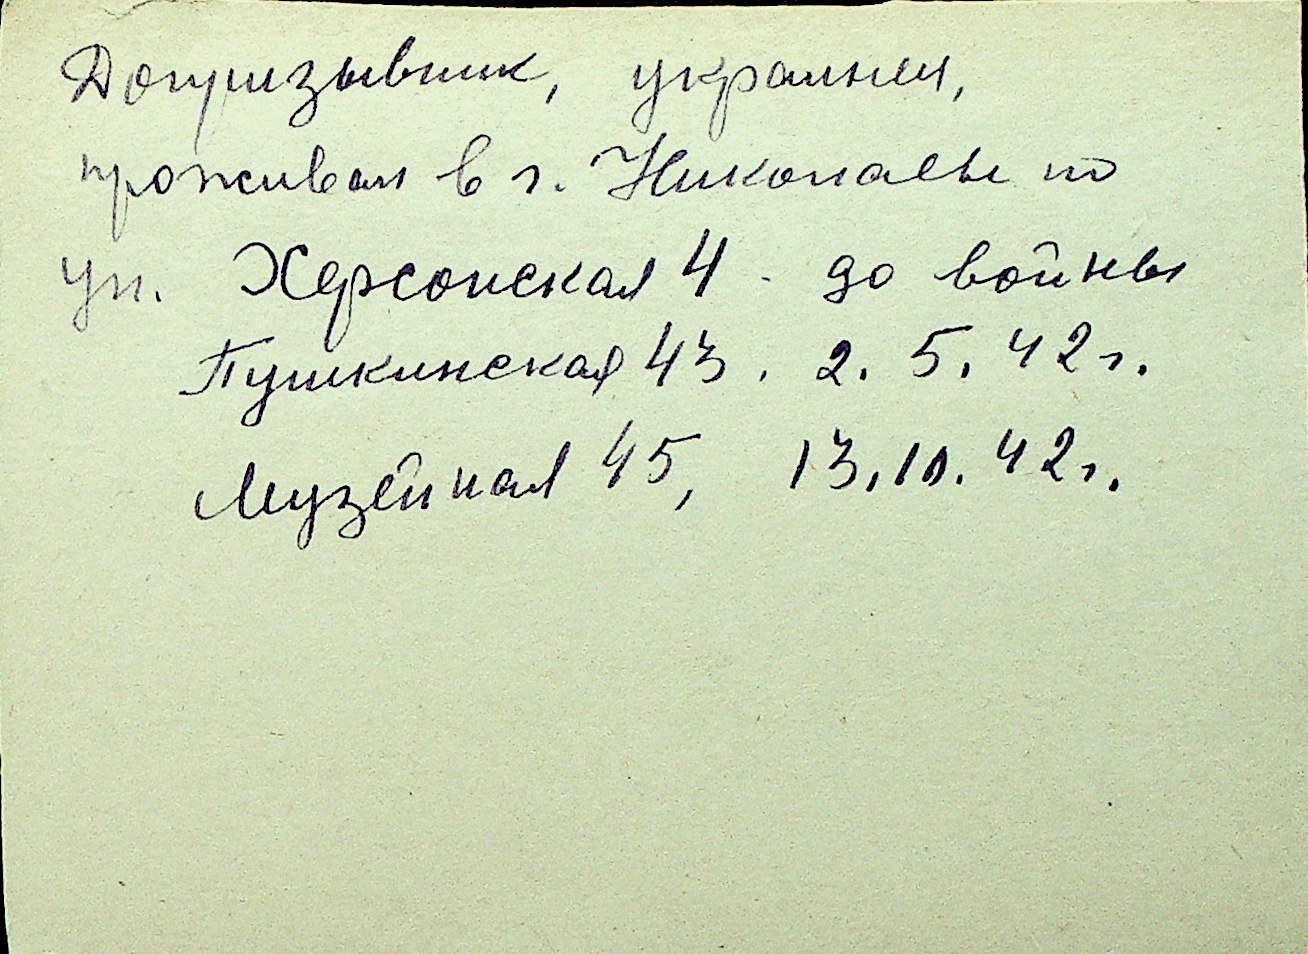 Допризывник, украинец,
проживал в г. Николаеве по
ул. Херсонская 4 - до войны
Пушкинская 43. 2. 5. 42 г.
Музейная 45, 13.10.42 г.